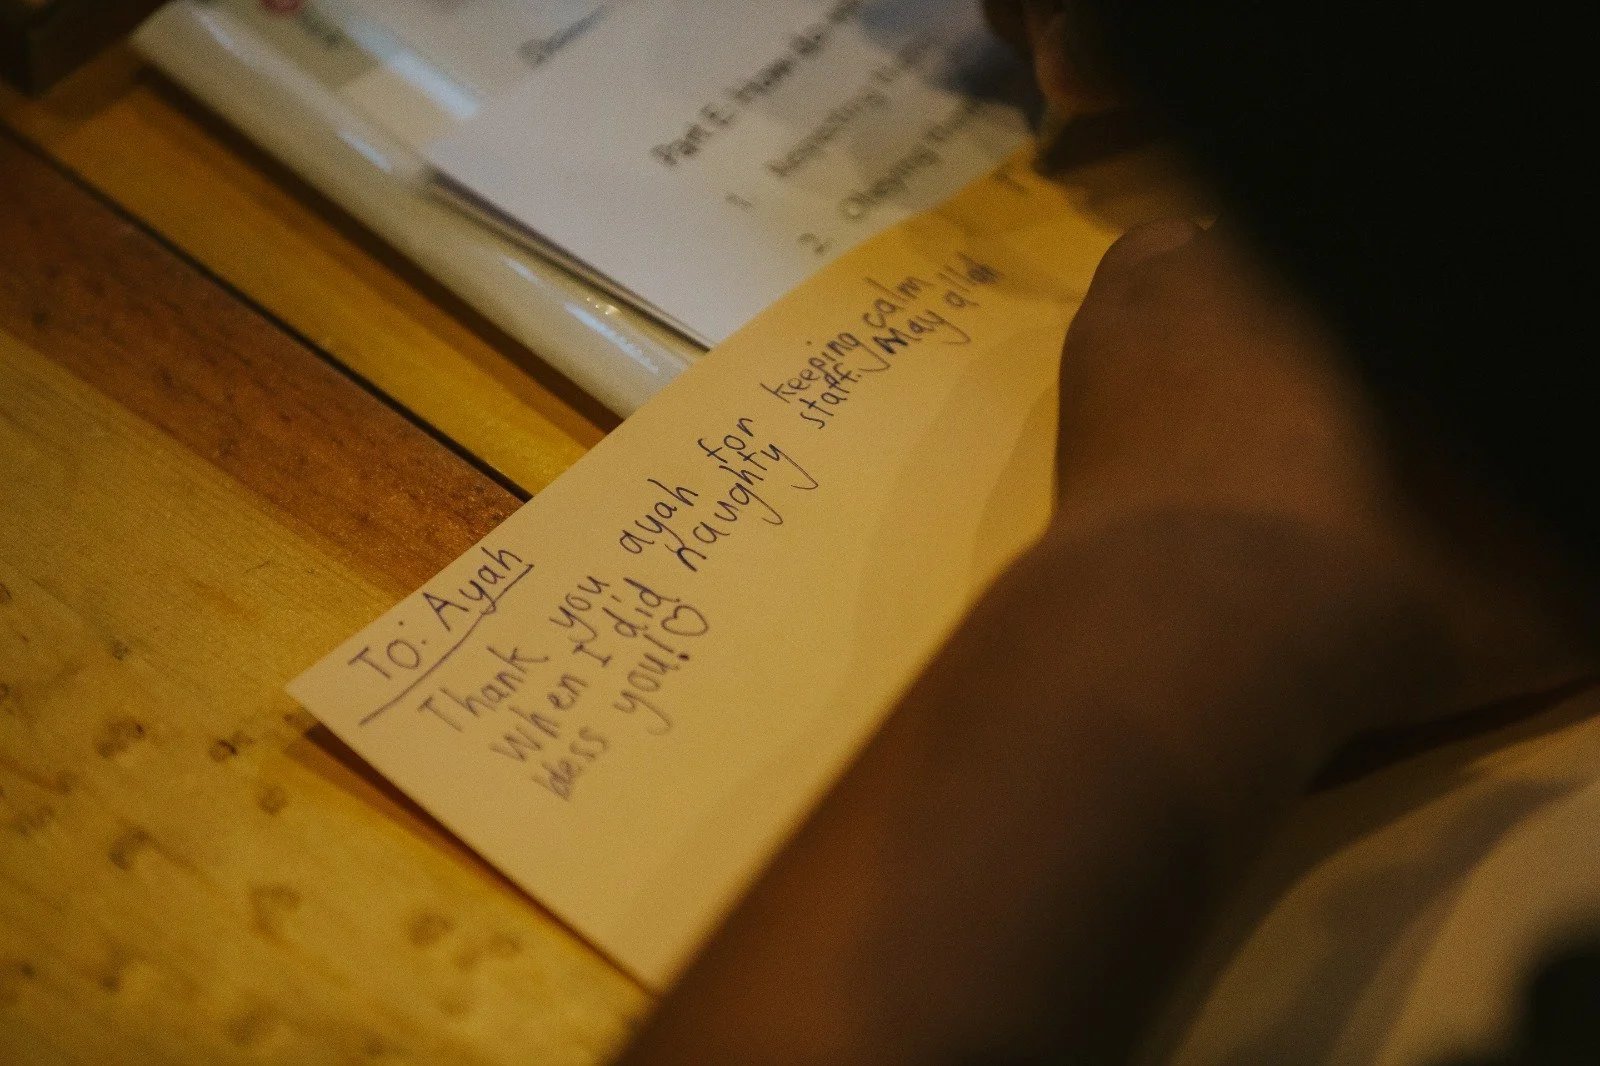 Part E:
1.
2. Obeying
To: Ayah
Thank you ayah for keeping calm
when I did naughty staff. May allah
bless you!♡